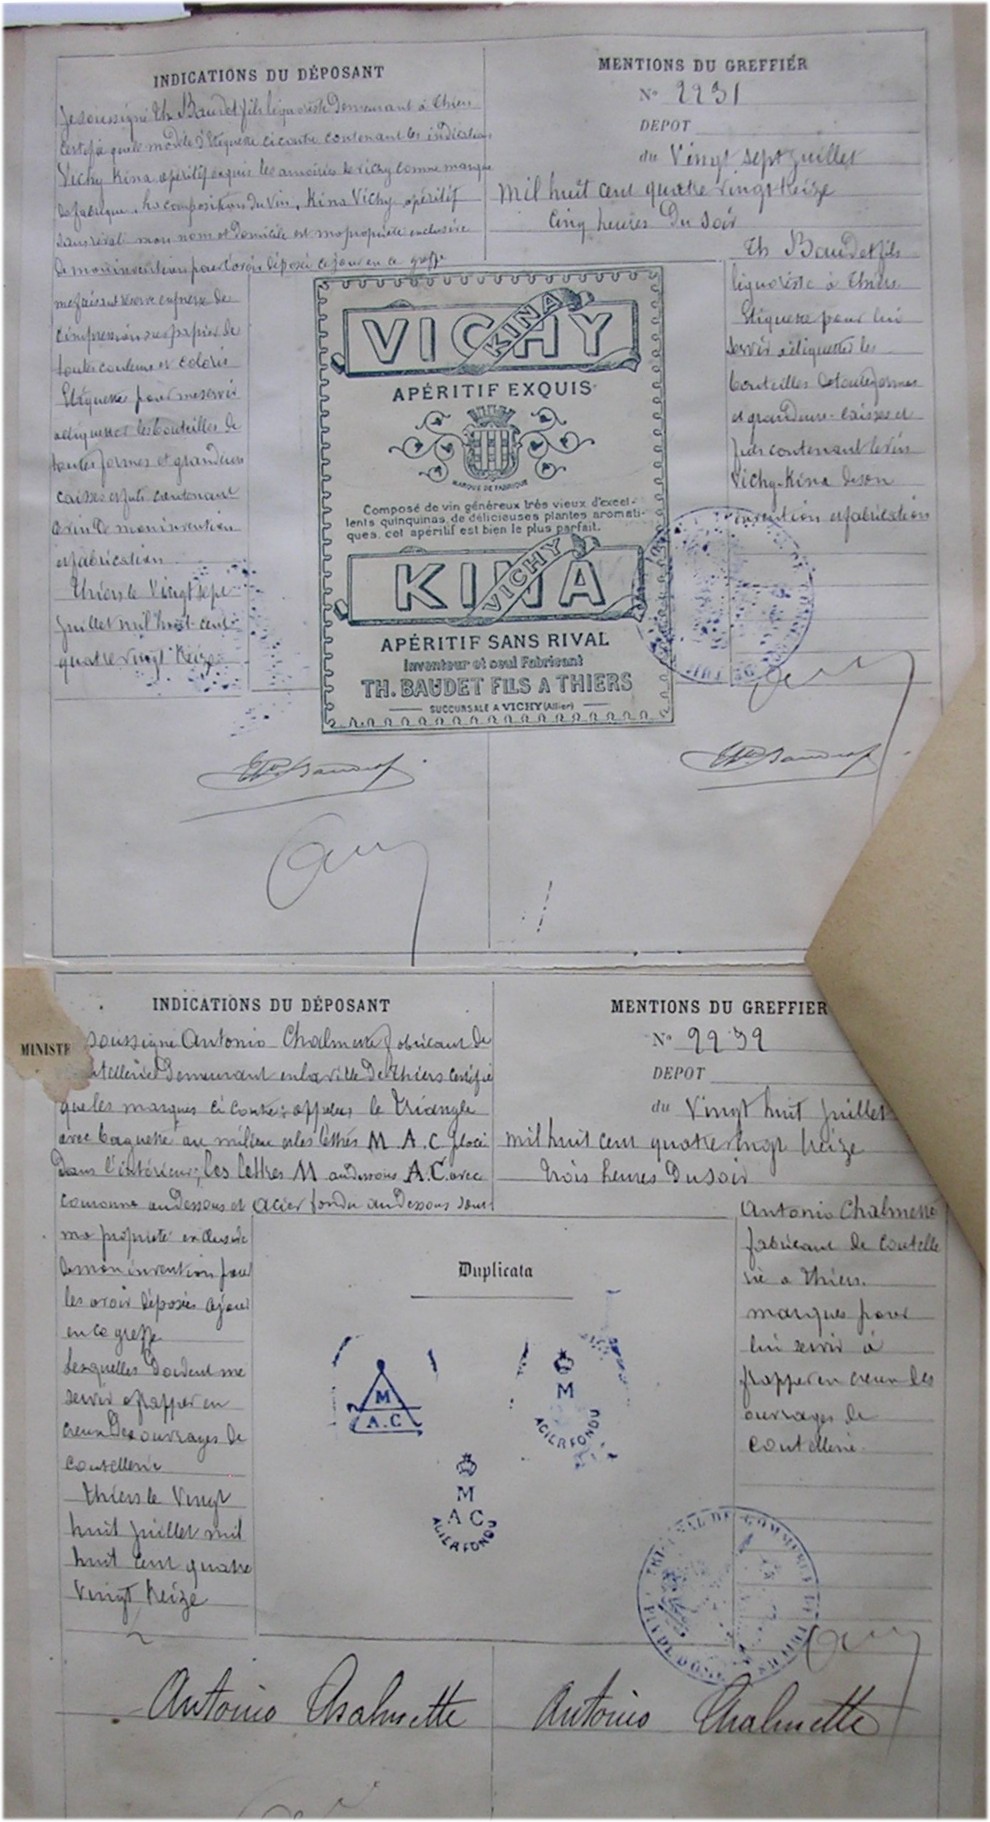 INDICATIONS DU DÉPOSANT
Je soussigné Th. Baudet fils liquoriste Demeurant à Thiers
certifie que le modèle d'Etiquette ci contre contenant les indications
Vichy Kina apéritif exquis les armoiries de Vichy comme marque
de fabrique. La composition du vin. Kina Vichy apéritif
sans rival mon nom et Domicile est ma propriété exclusive
de mon invention pour l'avoir déposé ce jour en ce greffe
me faisant réserve expresse de
l'impression sur papier de
toutes couleurs et coloris
Etiquette pour me servir
à étiqueter les bouteilles de
toutes formes et grandeurs
caisses et futs contenant
le vin de mon invention
et fabrication
Thiers le Vingt sept
juillet mil huit cent
quatre vingt treize
MENTIONS DU GREFFIER
No 2231
DEPOT
du Vingt sept juillet
mil huit cent quatre vingt treize
cinq heures Du soir
Th Baudet fils
liquoriste à Thiers
Etiquette pour lui
servir à étiqueter les
bouteilles de toutes formes
et grandeurs caisses et
futs contenant le vin
Vichy-Kina de son
invention et fabrication
VICHY
KINA
APÉRITIF EXQUIS
MARQUE DE FABRIQUE
Composé de vin généreux très vieux d'excel-
lents quinquinas, de délicieuses plantes aromati-
ques, cet apéritif est bien le plus parfait.
KINA
VICHY
APÉRITIF SANS RIVAL
Inventeur et seul Fabricant
TH. BAUDET FILS A THIERS
SUCCURSALE A VICHY (Allier)
MINISTE
INDICATIONS DU DÉPOSANT
soussigné Antonio Chalmette fabricant de
coutellerie Demeurant en la ville De Thiers certifie
que les marques ci contre: appelées le triangle
avec baguette au milieu et les lettres M A.C placé
Dans l'intérieur; les lettres M au dessous A.C. avec
couronne au dessous et acier fondu au dessous sont
ma propriété exclusive
de mon invention pour
les avoir déposées ce jour
en ce greffe
Lesquelles doivent me
servir à frapper en
creux Des ouvrages de
coutellerie
Thiers le Vingt
huit juillet mil
huit cent quatre
vingt treize
MENTIONS DU GREFFIER
No 2232
DEPOT
du Vingt huit juillet
mil huit cent quatre vingt treize
trois heures Du soir
Antonio Chalmette
fabricant de coutelle
rie à Thiers
marques pour
lui servir à
frapper en creux des
ouvrages de
coutellerie
Duplicata
M
A.C
M
ACIER FONDU
M
A C
ACIER FONDU
TRIBUNAL DE COMMERCE DE THIERS
PUY DE DÔME
Antonio Chalmette
Antonio Chalmette